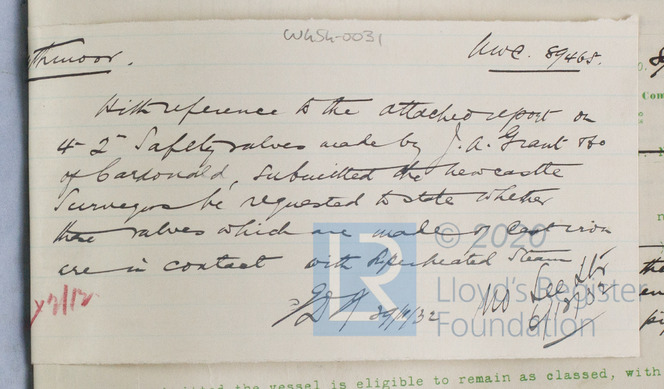 W454-0031
thmoor. Nwc. 89465.
With reference to the attached report on
4 - 2" Safety valves made by J. A. Grant & Co
of Cardonald, submitted the Newcastle
Surveyors be requested to state whether
these valves which are made of cast iron
are in contact with superheated Steam
29/11/32
No See Ltr
6/12/32
© 2020
LR Lloyd's Register
Foundation
the vessel is eligible to remain as classed, with